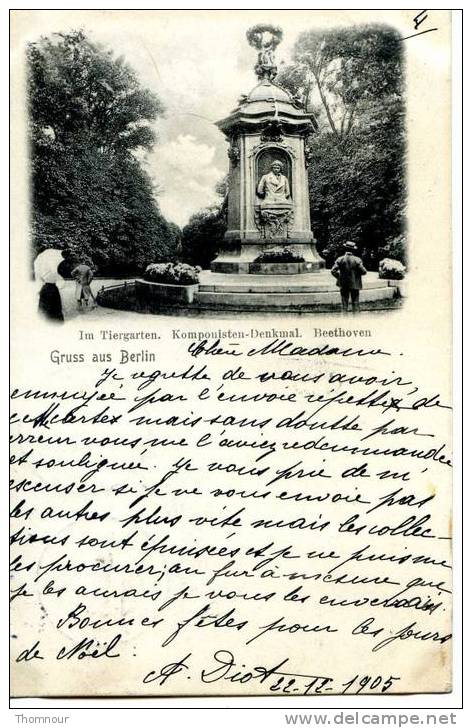 4
Im Tiergarten. Komponisten-Denkmal. Beethoven
Gruss aus Berlin
Cher Madame.
Je regrette de vous avoir,
ennuyée par l'envoie répettix de
cartex mais sans doutte par
erreur vous me l'aviez redemmandée
et soulignée. Je vous prie de m'
excuser si je ne vous envoie pas
les autres plus vite mais les collec-
tions sont épuisées et je ne puis me
les procurer; au fur à mesure que
je les aurais je vous les enverrais.
Bonnes fêtes pour les jours
de Noël.
A. Diot
22-12-1905
Thomnour
http://www.delcampe.net